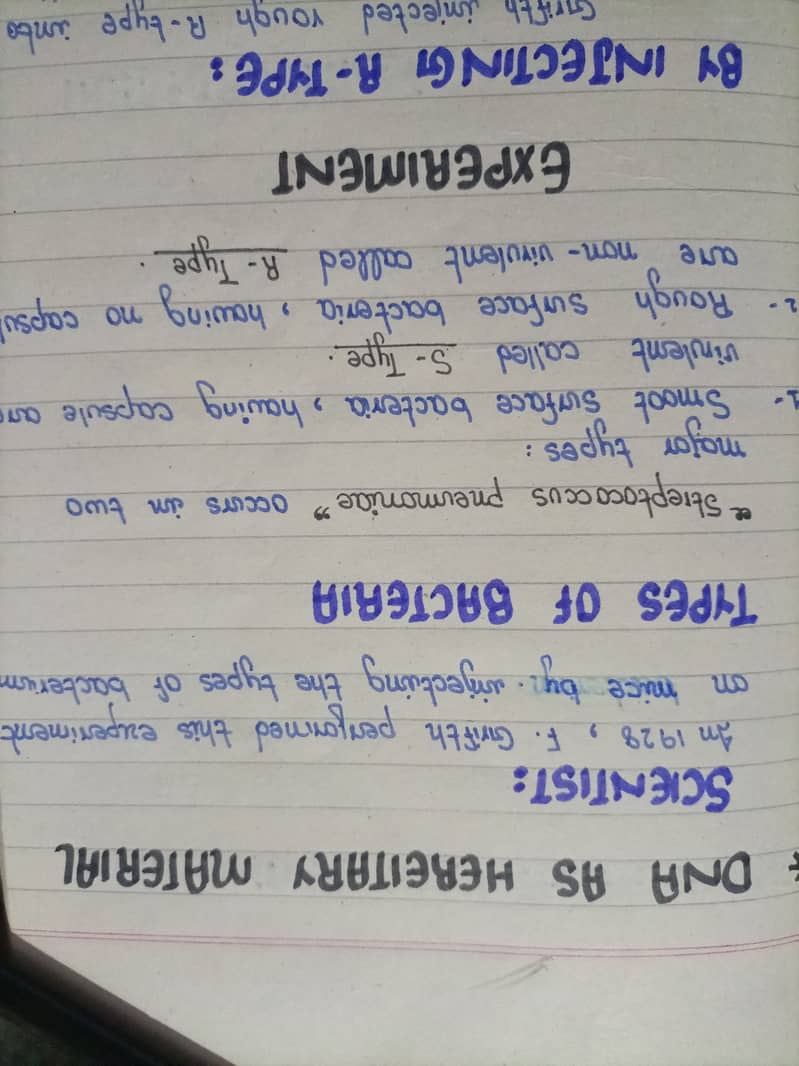 * DNA AS HEREITARY MATERIAL
SCIENTIST:
In 1928, F. Grifith performed this experiment
on mice by injecting the types of bacterium
TYPES OF BACTERIA
"Streptococcus pneumoniae" occurs in two
major types:
1- Smoot surface bacteria, having capsule are
virulent called S-Type.
2- Rough surface bacteria, having no capsul
are non-virulent called R-Type.
EXPERIMENT
BY INJECTING R-TYPE:
Grifith injected rough R-type into